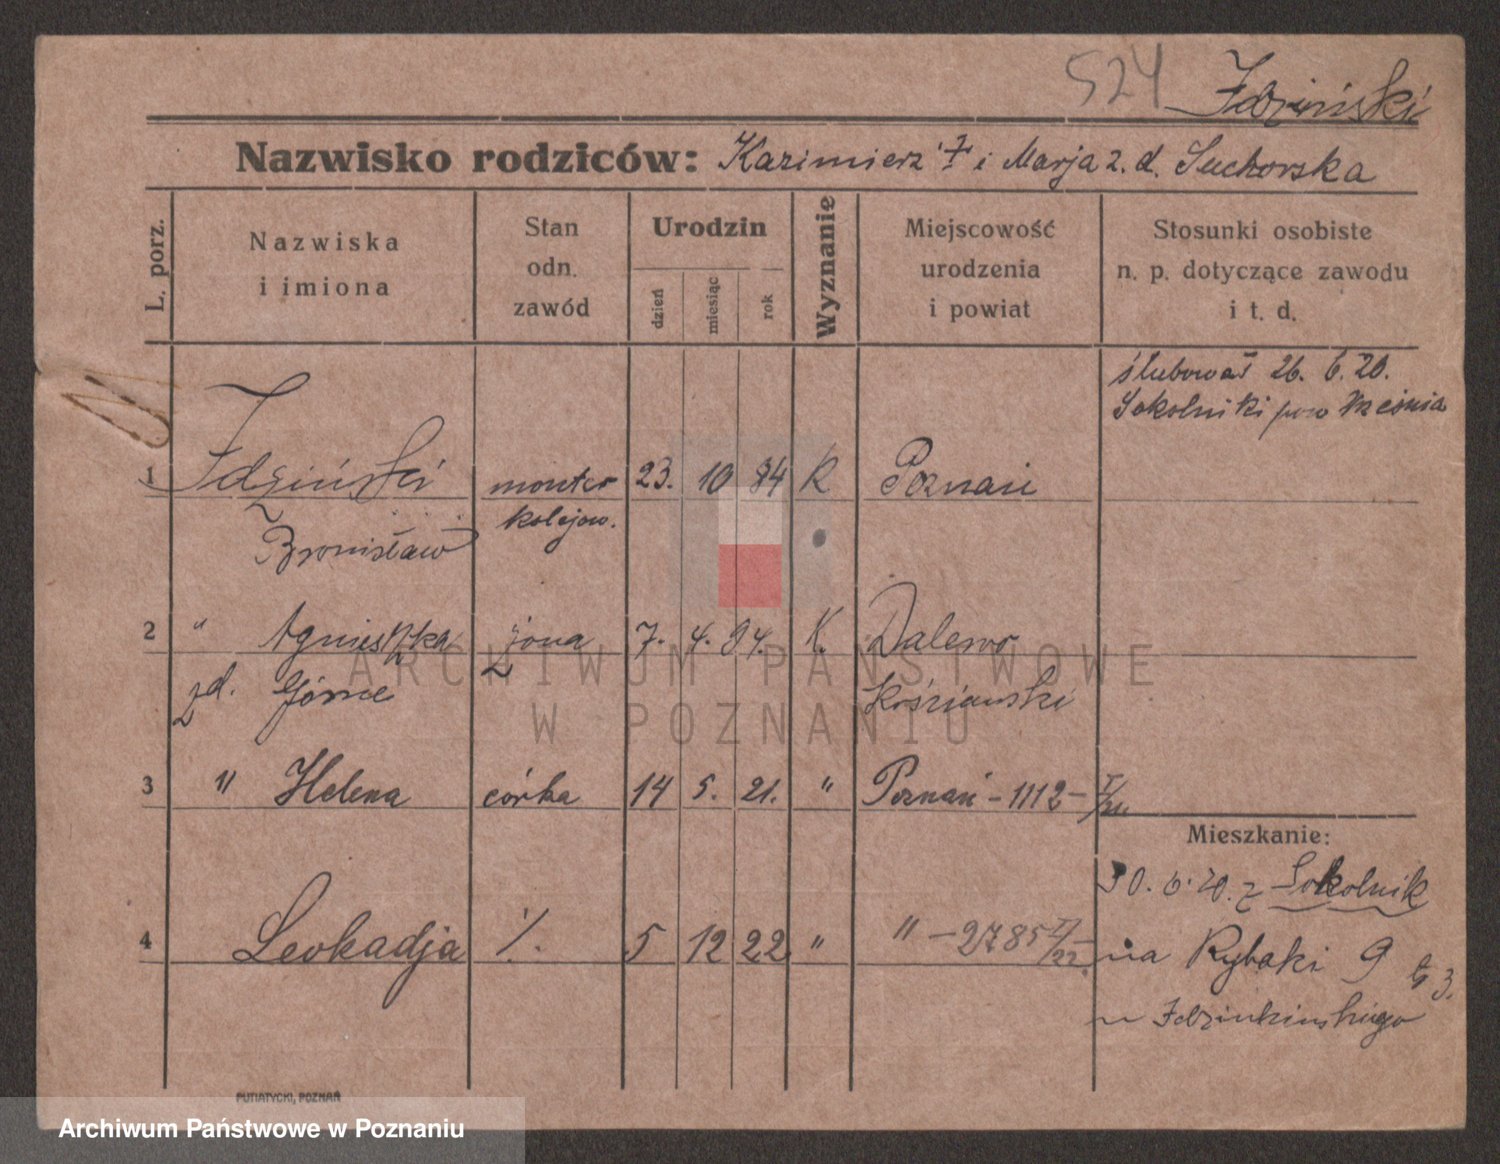 524 Idziński
Nazwisko rodziców: Kazimierz † i Marja z. d. Suchorska
L. porz.
Nazwiska
i imiona
Stan
odn.
zawód
Urodzin
dzień
miesiąc
rok
Wyznanie
Miejscowość
urodzenia
i powiat
Stosunki osobiste
n. p. dotyczące zawodu
i t. d.
ślubował 26. 6. 20.
Sokolniki pow Września
1 Idziński monter 23. 10 84 R Poznań
Bronisław kolejow.
2 " Agnieszka żona 7. 4. 94. K. Dalewo
zd. Górne Kościański
3 " Helena córka 14 5. 21. " Poznań – 1112 –
Mieszkanie:
30. 6. 20. z Sokolnik
4 Leokadja ./. 5 12 22 " " – 2785 II/22.
na Rybaki 9 3.
PUTIATYCKI, POZNAŃ
ARCHIWUM PAŃSTWOWE
W POZNANIU
Archiwum Państwowe w Poznaniu